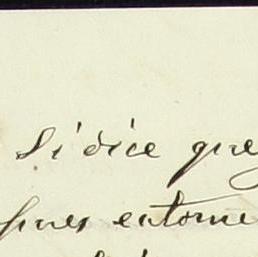 Si dice que
pues entorne